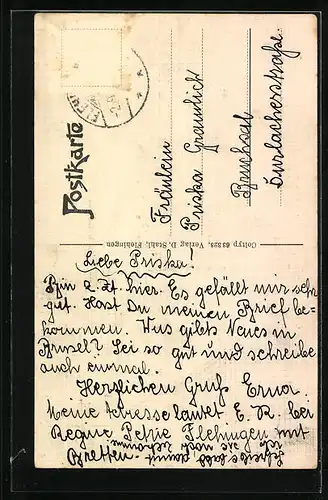 Postkarte
Fräulein
Priska Gramlich
Bruchsal
Durlacherstraße
Coltyp 63328, Verlag D. Stahl, Flehingen
Liebe Priska!
Bin z. Zt. hier. Es gefällt mir sehr
gut. Hast Du meinen Brief be-
kommen. Was gibts Neues in
Brusel? Sei so gut und schreibe
auch einmal.
Herzlichen Gruß Erna.
Meine Adresse lautet E. R. bei
Regine Petrie Flehingen Amt
Bretten.
Schreibe bald damit